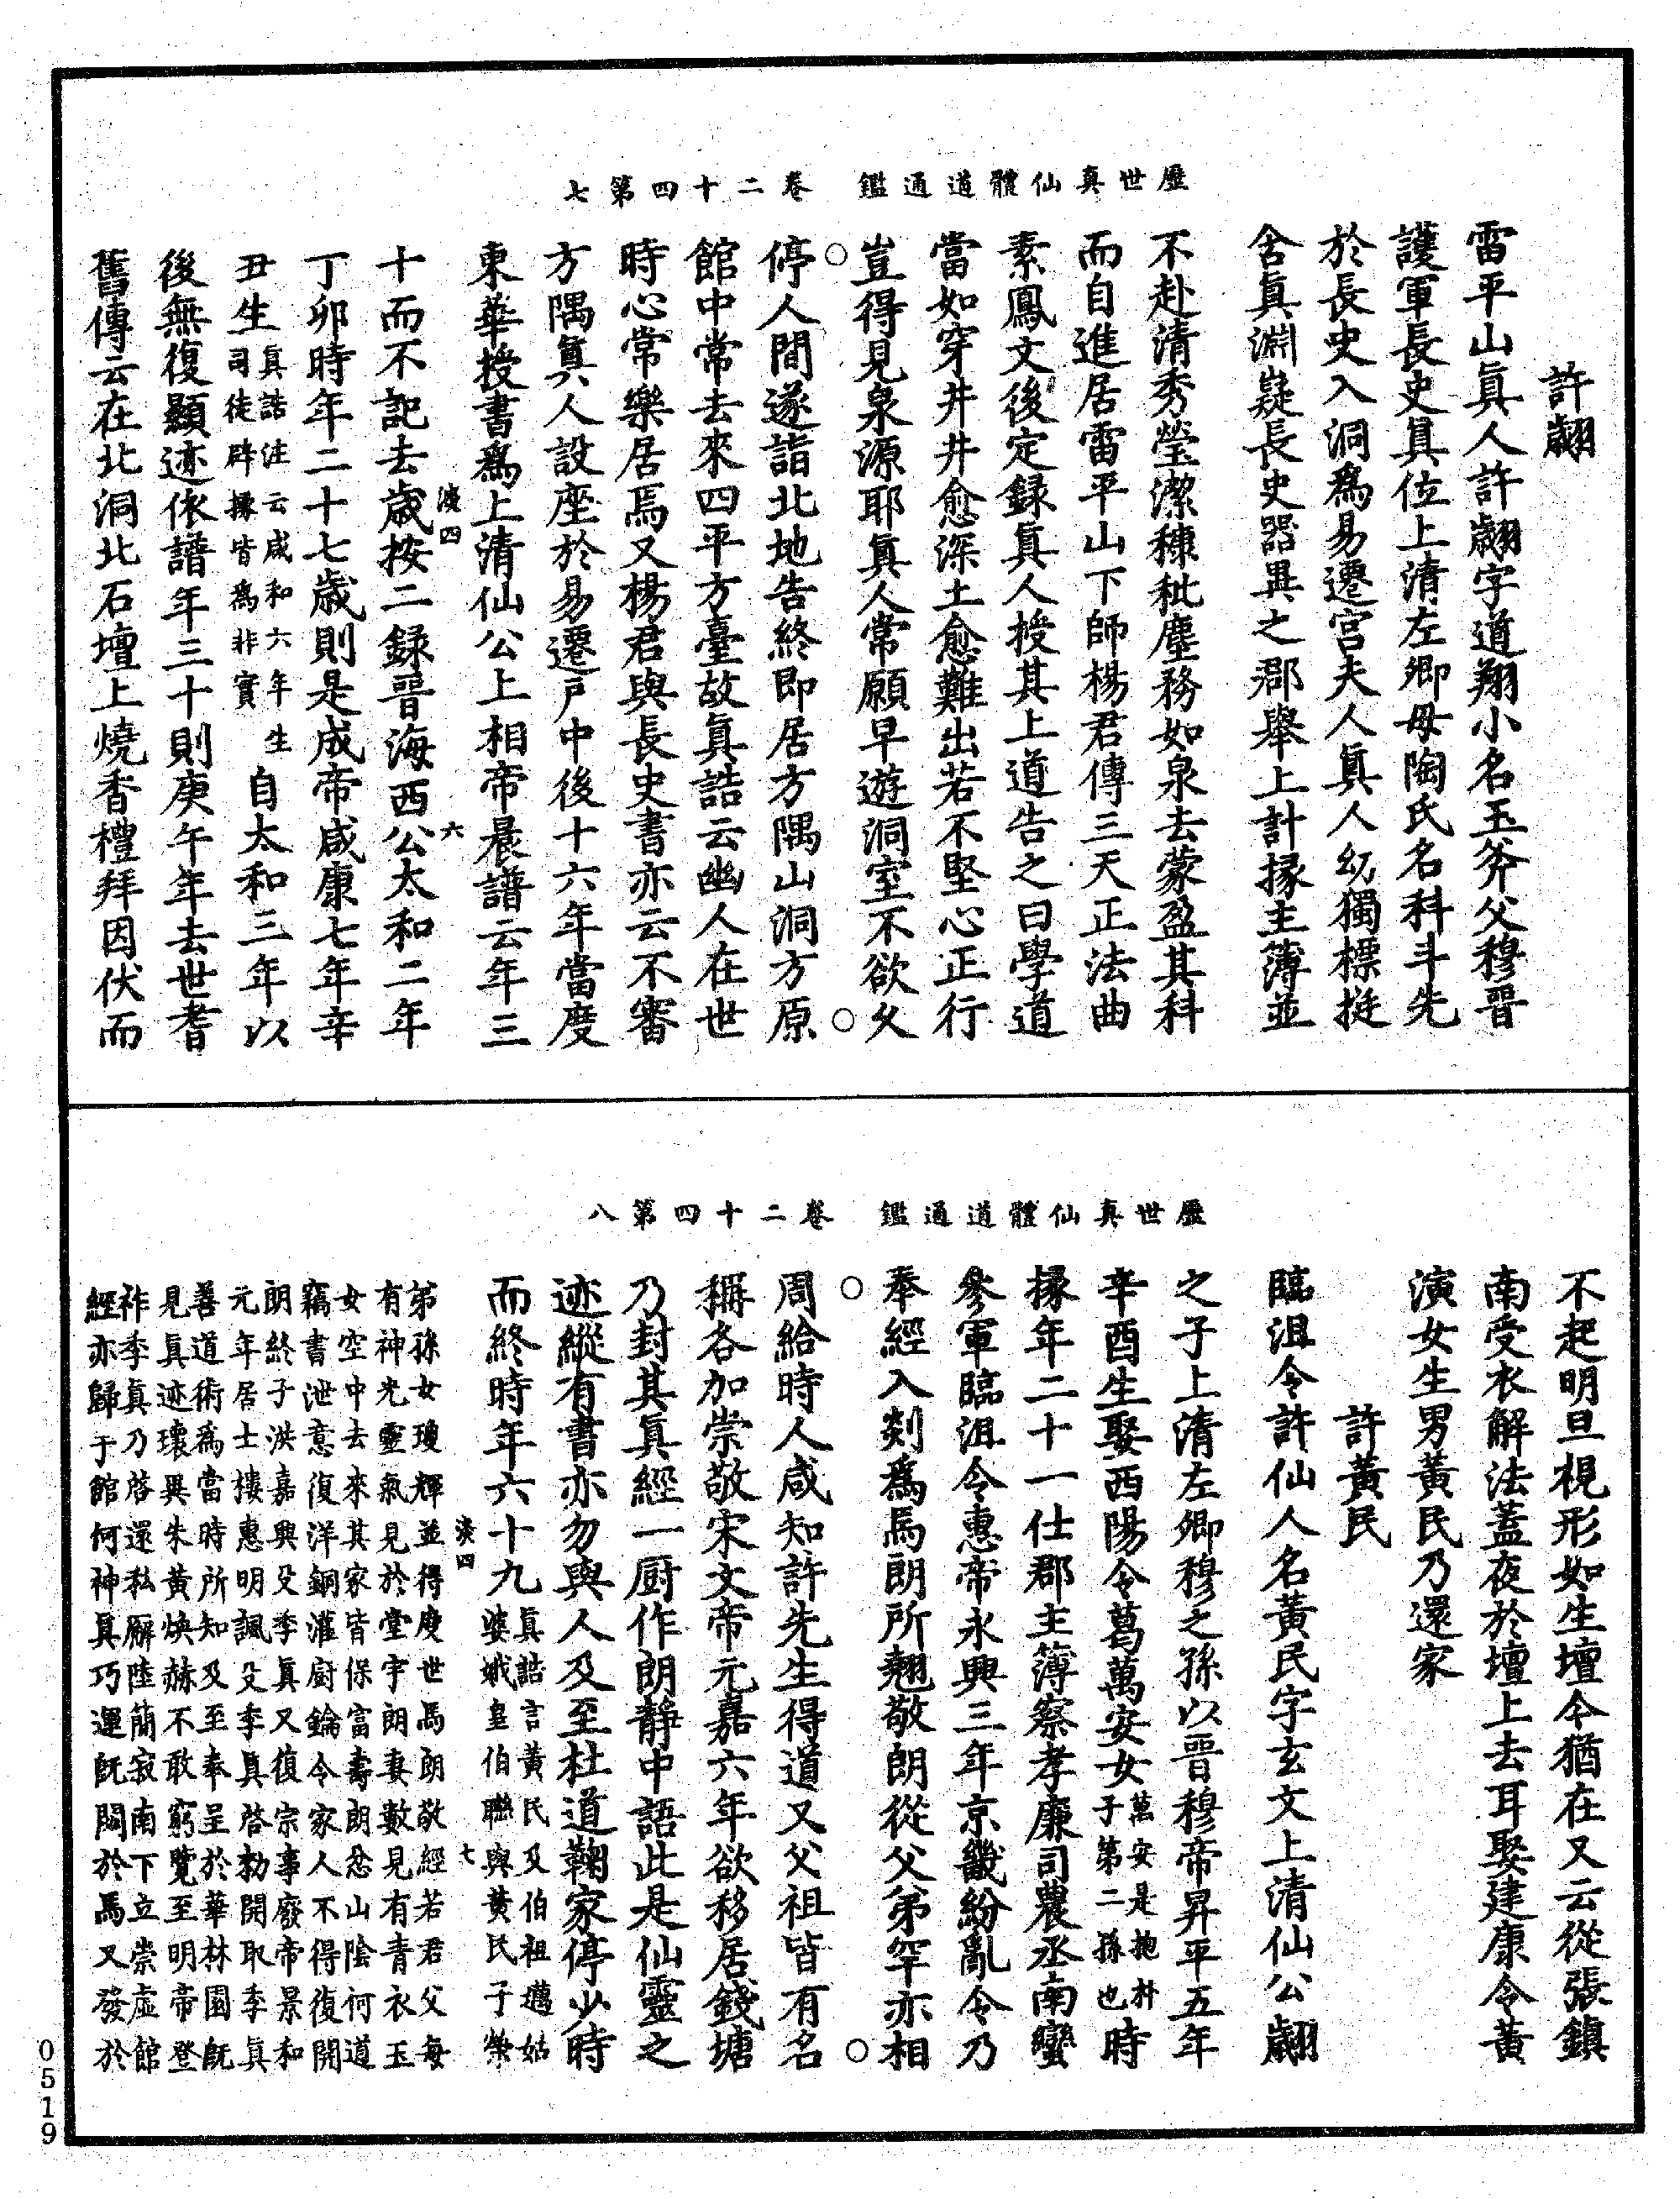 歷世真仙體道通鑑　卷二十四第七
許翽
雷平山真人許翽字道翔小名玉斧父穆晉
護軍長史真位上清左卿母陶氏名科斗先
於長史入洞爲易遷宮夫人真人幼獨標挺
含真淵嶷長史器異之郡舉上計掾主簿並
不赴清秀瑩潔糠秕塵務如泉去蒙盈其科
而自進居雷平山下師楊君傳三天正法曲
素鳳文後定錄真人授其上道告之曰學道
當如穿井井愈深土愈難出若不堅心正行
豈得見泉源耶真人常願早遊洞室不欲久
停人間遂詣北地告終即居方隅山洞方原
館中常去來四平方臺故真誥云幽人在世
時心常樂居焉又楊君與長史書亦云不審
方隅真人設座於易遷戶中後十六年當度
東華授書爲上清仙公上相帝晨譜云年三
淡四　六
十而不記去歲按二錄晉海西公太和二年
丁卯時年二十七歲則是成帝咸康七年辛
丑生真誥注云咸和六年生司徒辟掾皆爲非實自太和三年以
後無復顯迹依譜年三十則庚午年去世耆
舊傳云在北洞北石壇上燒香禮拜因伏而
歷世真仙體道通鑑　卷二十四第八
不起明旦視形如生壇今猶在又云從張鎮
南受衣解法蓋夜於壇上去耳娶建康令黃
演女生男黃民乃還家
許黃民
臨沮令許仙人名黃民字玄文上清仙公翽
之子上清左卿穆之孫以晉穆帝昇平五年
辛酉生娶西陽令葛萬安女萬安是抱朴子第二孫也時
掾年二十一仕郡主簿察孝廉司農丞南蠻
參軍臨沮令惠帝永興三年京畿紛亂令乃
奉經入剡爲馬朗所翹敬朗從父弟罕亦相
周給時人咸知許先生得道又父祖皆有名
稱各加崇敬宋文帝元嘉六年欲移居錢塘
乃封其真經一厨作朗靜中語此是仙靈之
迹縱有書亦勿與人及至杜道鞠家停少時
而終時年六十九真誥言黃民及伯祖邁姑婆娥皇伯聯與黃民子榮
淡四　七
弟孫女瓊輝並得度世馬朗敬經若君父每
有神光靈氣見於堂宇朗妻數見有青衣玉
女空中去來其家皆保富壽朗忿山陰何道
竊書泄意復洋銅灌厨鑰令家人不得復開
朗終子洪嘉興殳季真又復宗事廢帝景和
元年居士樓惠明諷殳季真啓勑開取季真
善道術爲當時所知及至奉呈於華林園既
見真迹瓌異朱黃煥赫不敢窮覽至明帝登
祚季真乃啓還私廨陸簡寂南下立崇虛館
經亦歸于館何神真巧運既閟於馬又發於
0519